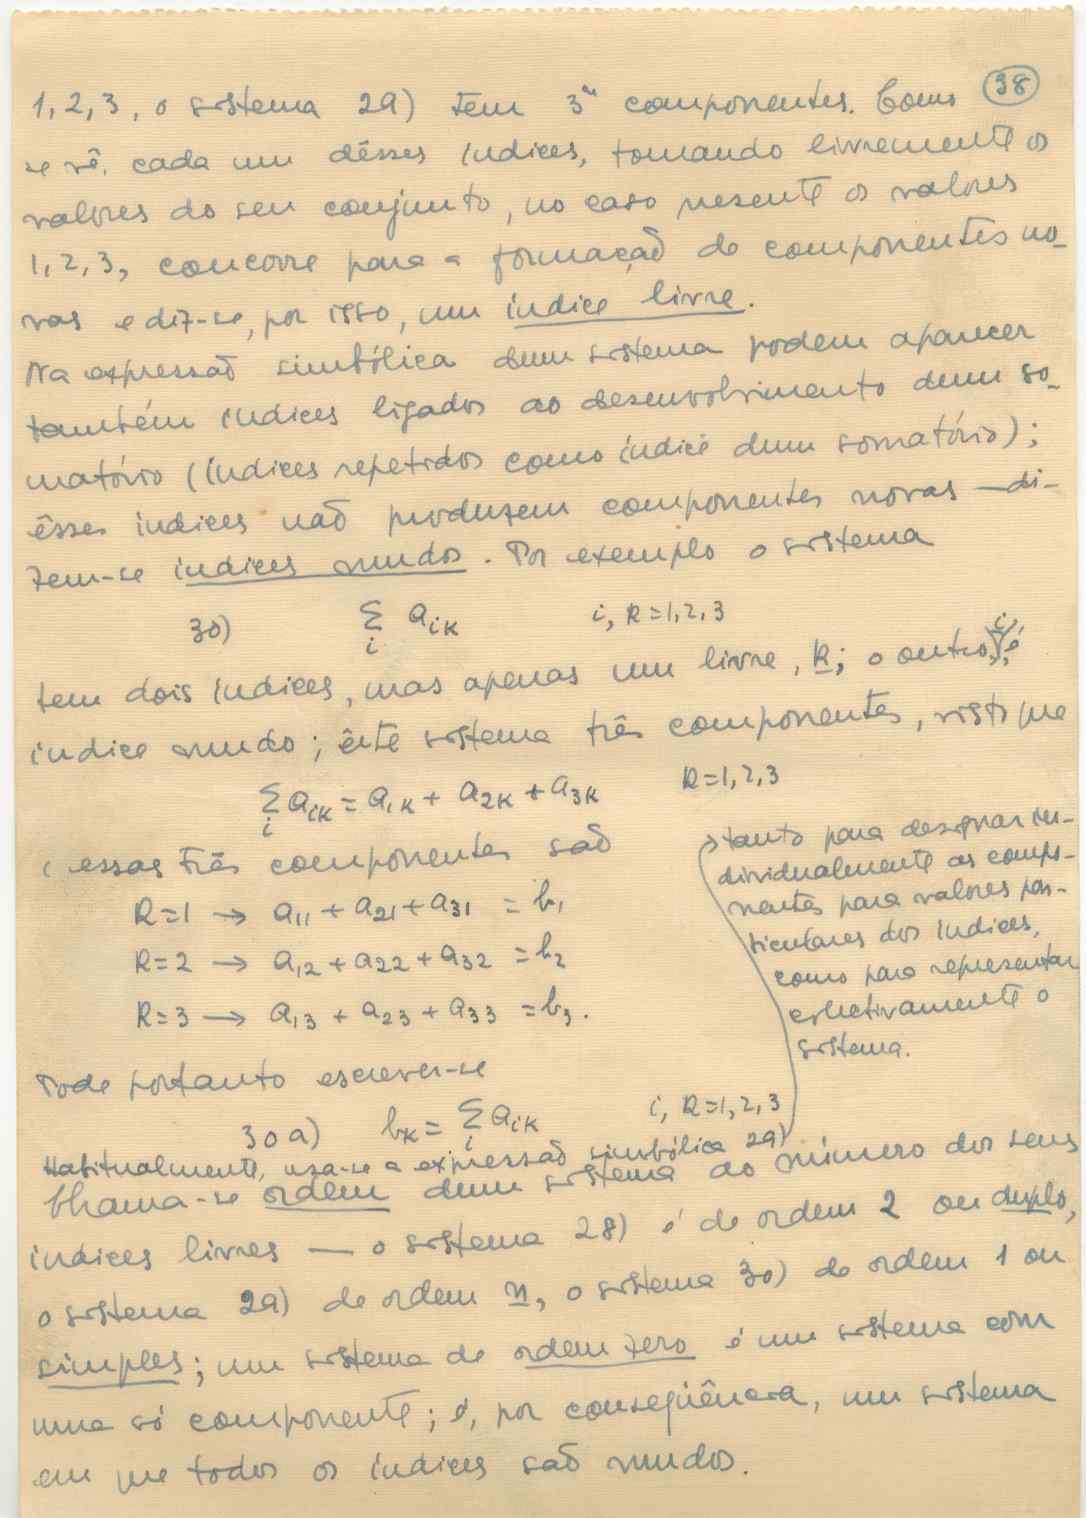 38
1, 2, 3, o sistema 29) tem 3ⁿ componentes. Como
se vê, cada um dêsses índices, tomando livremente os
valores do seu conjunto, no caso presente os valores
1, 2, 3, concorre para a formação de componentes no-
vas e diz-se, por isso, um índice livre.
Na expressão simbólica dum sistema podem aparecer
também índices ligados ao desenvolvimento dum so-
matório (índices repetidos como índice dum somatório);
êsses índices não produzem componentes novas — di-
zem-se índices mudos. Por exemplo o sistema
30) Σ_i a_ik i, k = 1, 2, 3
tem dois índices, mas apenas um livre, k; o outro, i, é
índice mudo; êste sistema três componentes, visto que
Σ_i a_ik = a_1k + a_2k + a_3k k = 1, 2, 3
e essas três componentes são
k = 1 → a_11 + a_21 + a_31 = b_1
k = 2 → a_12 + a_22 + a_32 = b_2
k = 3 → a_13 + a_23 + a_33 = b_3.
Pode portanto escrever-se
30 a) b_k = Σ_i a_ik i, k = 1, 2, 3
Habitualmente, usa-se a expressão simbólica 29)
tanto para designar in-
dividualmente as compo-
nentes para valores par-
ticulares dos índices,
como para representar
colectivamente o
sistema.
Chama-se ordem dum sistema ao número dos seus
índices livres — o sistema 28) é de ordem 2 ou duplo,
o sistema 29) de ordem n, o sistema 30) de ordem 1 ou
simples; um sistema de ordem zero é um sistema com
uma só componente; é, por conseqüência, um sistema
em que todos os índices são mudos.